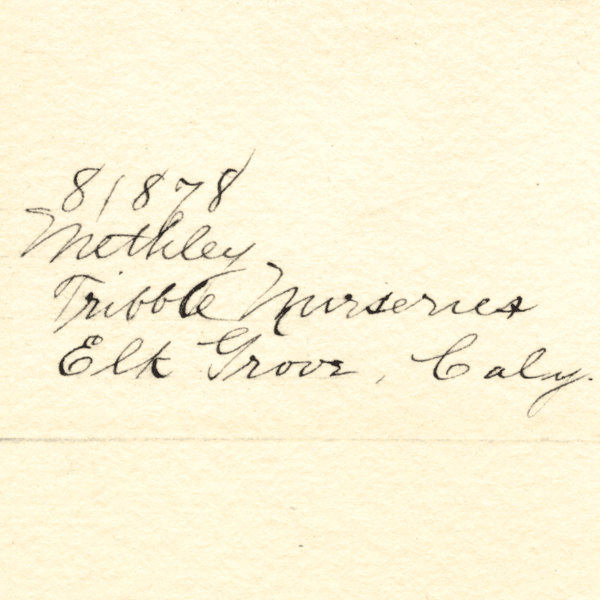 81878
Methley
Tribble Nurseries
Elk Grove, Caly.